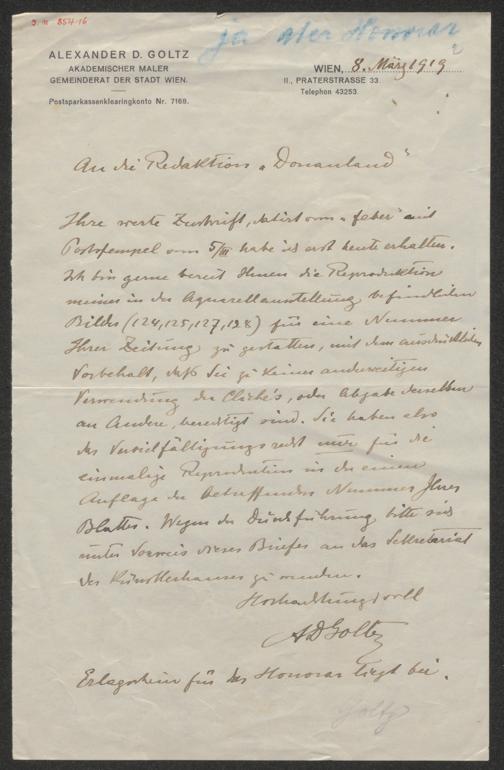 J. N. 854-16
ja aber Honorar
2
ALEXANDER D. GOLTZ
AKADEMISCHER MALER
GEMEINDERAT DER STADT WIEN.
Postsparkassenklearingkonto Nr. 7169.
WIEN, 8. März 1919
II., PRATERSTRASSE 33.
Telephon 43253.
An die Redaktion „Donauland"
Ihre werte Zuschrift, datirt vom „feber" mit
Poststempel vom 5/III habe ich erst heute erhalten.
Ich bin gerne bereit Ihnen die Reproduktion
meiner in der Aquarellausstellung befindlichen
Bilder (124, 125, 127, 128) für eine Nummer
Ihrer Zeitung zu gestatten, mit dem ausdrücklichen
Vorbehalt, daß Sie zu keiner anderweitigen
Verwendung der Clichés, oder Abgabe derselben
an Andere, berechtigt sind. Sie haben also
das Vervielfältigungsrecht nur für die
einmalige Reproduktion in der einen
Auflage der betreffenden Nummer Ihres
Blattes. Wegen der Durchführung bitte sich
unter Vorweis dieses Briefes an das Sekretariat
des Künstlerhauses zu wenden.
Hochachtungsvoll
ADGoltz
Erlagschein für das Honorar liegt bei.
Goltz